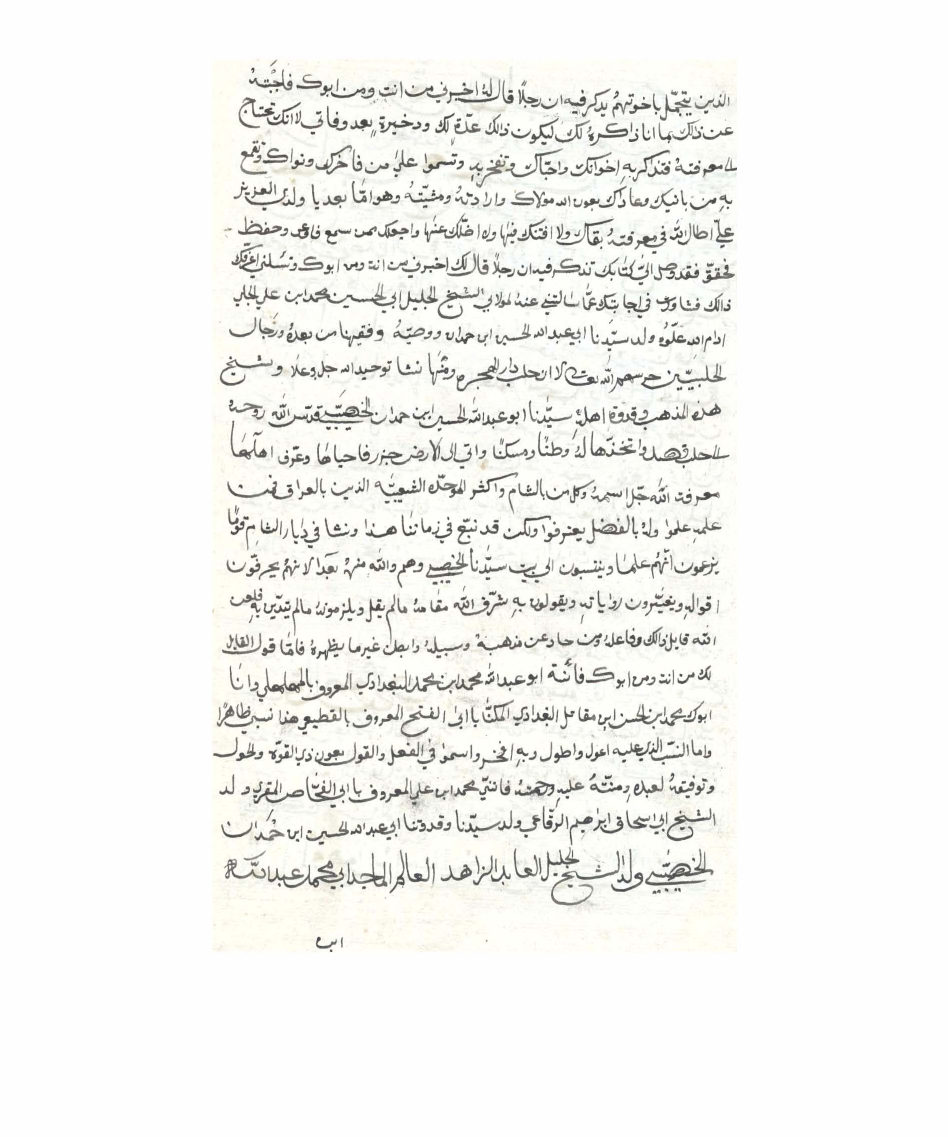 الذين يتجمّل باخوتهمُ يدكر فيه ان رجلًا قال لهُ اخبرني من انت ومن ابوك فاجبْتهُ
عن ذالك بما انا ذاكرهُ لك ليكون ذالك عدّة لك ودخيرة بعد وفاتي لانك تحتاج
معرفتهُ فتذاكر بهِ اخوانك واحبّاك وتفخر بهِ وتسموا علىٰ من فاخرك ونواك وتقمع
بهِ من يانيك وعاداك بعون الله مولاك وارادتهُ ومشيّتهُ وهو امّا بعد يا ولدي العزيز
عليّ اطال اللهُ في معرفتهِ بقاك ولا افتنك فيها ولا اضلّك عنها واجعلك ممن سمع فاوعى وحفظ
فحقق فقد وصل اليّ كتابك تذكر فيه ان رجلًا قال لك اخبرني من انت ومن ابوك وتسلني اعرفك
ذالك في اجابتك عمّا سالتني عنهُ لمولاي الشيخ الجليل ابي الحسين محمد ابن علي الجلي
ادام الله علوّه ولد سيّدنا ابي عبد الله الحسين ابن حمدان ووصيّهُ وفقيهنا من بعدهُ ورجال
الحلبيّين حرسهم اللهُ تعالى لان حلب دار الهجره ومنها نشا توحيد الله جل وعلا وشيخ
هذه المذهب وقدوة اهلهِ سيّدنا ابو عبد الله الحسين ابن حمدان الخصيبي قدّس اللهُ روحهُ
حلب قصد واتخذها لهُ وطنًا ومسكنًا واتي الى الارض جزر فاحياها وعرّف اهلها
معرفت اللهُ جلّ اسمهُ وكل من بالشام واكثر الموحّده الشعيبيّه الذين بالعراق فمن
علمهِ علموا ولهُ بالفضل يعترفوا ولكن قد نبّع في زماننا هذا ونشا في ديار الشام قومًا
يزعمون انّهُم علما وينتسبون الى بيت سيّدنا الخصيبي وهم والله منهُ بعدا لانهم يحرفون
اقوالهِ ويغيّرون رواياتهِ ويقولون بهِ شرّف الله مقامهُ مالم يقل ويلزمونهُ مالم يتديّن بهِ فلعن
اللهُ قايل ذالك وفاعلهُ ومن حاد عن مذهبهُ وسبيلهُ وابطن غير ما يظهرهُ فامّا قول القايل
لك من انت ومن ابوك فانّهُ ابو عبد الله محمد ابن محمد البغدادي المعروف بالمهلهلي وانا
ابوك محمد ابن الحسن ابن مقاتل البغدادي المكنّا بابي الفتح المعروف بالقطيعي هذا نسبي ظاهرًا
واما النسب الذي عليهِ اعول واطول وبهِ افخر واسموا في الفعل والقول بعون ذي القوّة والحول
وتوفيقهُ لعبدهِ ومنّتهُ عليهِ ورحمتهُ فانني محمد ابن علي المعروف بابي الفخّاص المقري ولد
الشيخ ابي اسحاق ابرهيم الرقّاعي ولد سيّدنا وقدوتنا ابي عبد الله الحسين ابن حمدان
الخصيبي ولد الشيخ الجليل العابد الزاهد العالم الماجد ابي محمد عبد الله
ابن